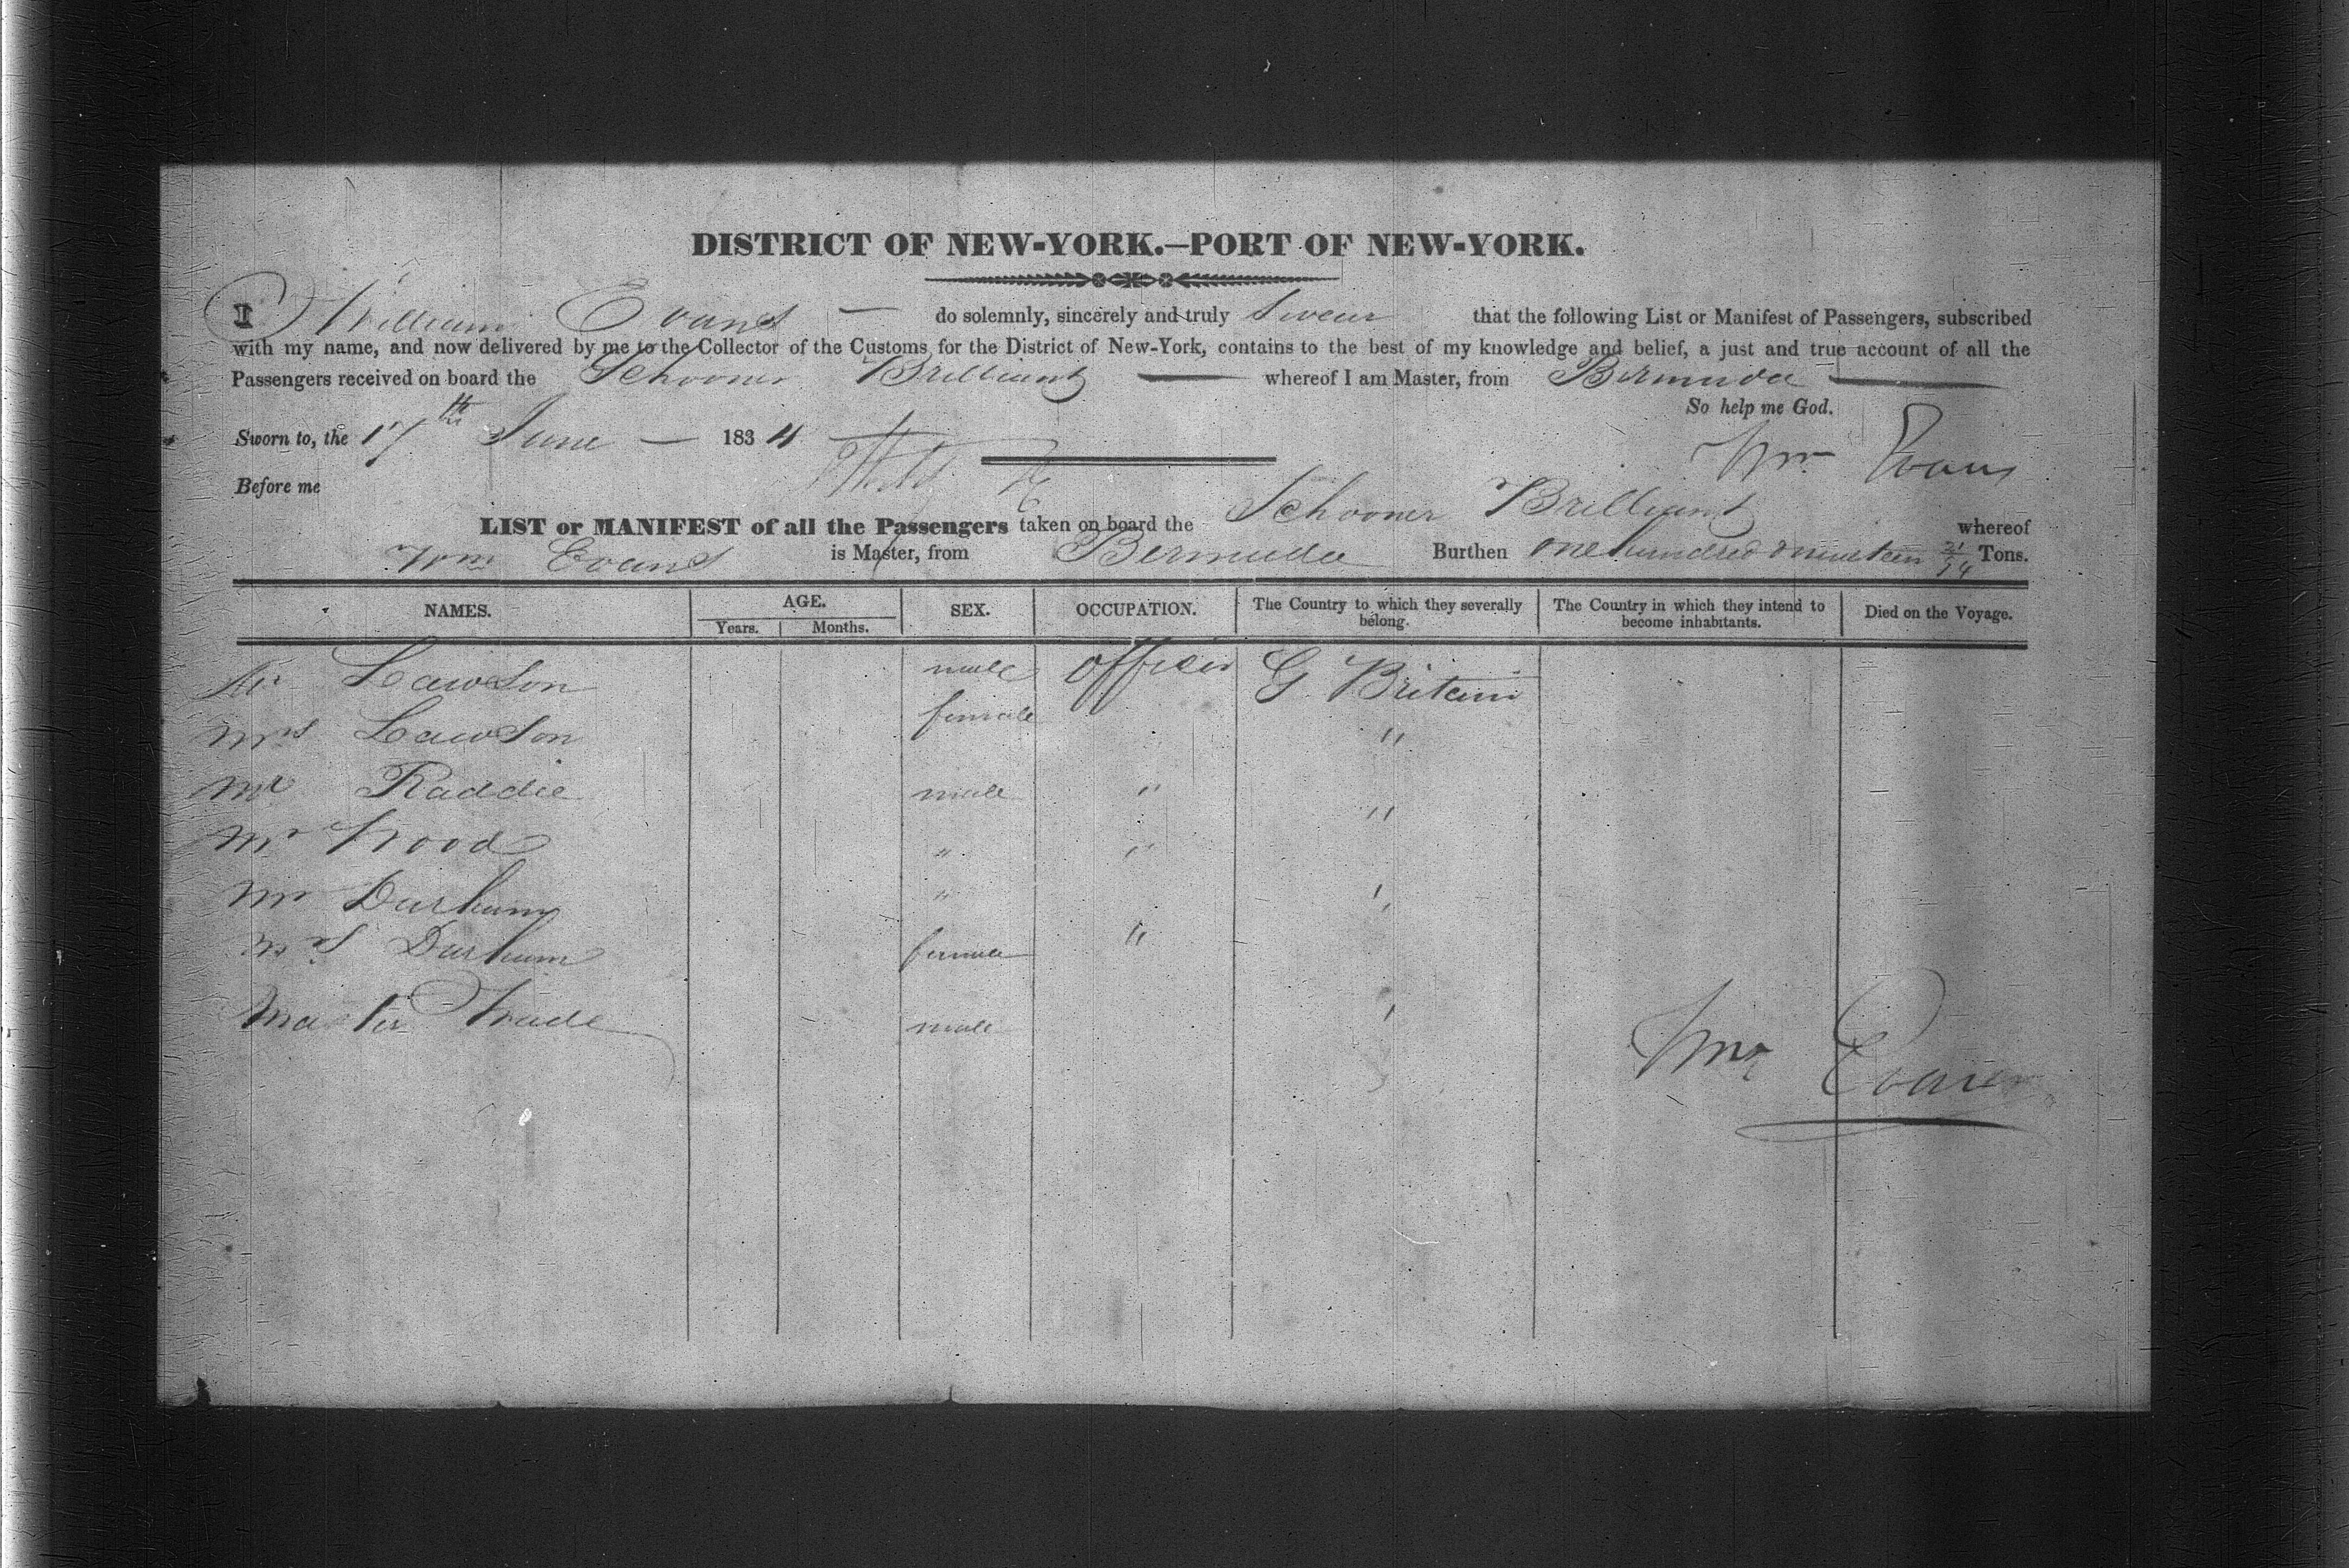 DISTRICT OF NEW-YORK.—PORT OF NEW-YORK.
I William Evans — do solemnly, sincerely and truly Swear that the following List or Manifest of Passengers, subscribed
with my name, and now delivered by me to the Collector of the Customs for the District of New-York, contains to the best of my knowledge and belief, a just and true account of all the
Passengers received on board the Schooner Brilliant — whereof I am Master, from Bermuda —
So help me God.
Sworn to, the 17th June — 1834
Wm Evans
Before me
LIST or MANIFEST of all the Passengers taken on board the Schooner Brilliant whereof
Wm Evans is Master, from Bermuda Burthen one hundred & nineteen Tons.
NAMES. AGE. SEX. OCCUPATION. The Country to which they severally belong. The Country in which they intend to become inhabitants. Died on the Voyage.
Years. Months.
Mr Lawson male officer G. Britain
Mrs Lawson female "
Mr Raddie male " "
Mr Wood " "
Mr Durham " "
Mrs Durham female "
Master male "
Wm Evans